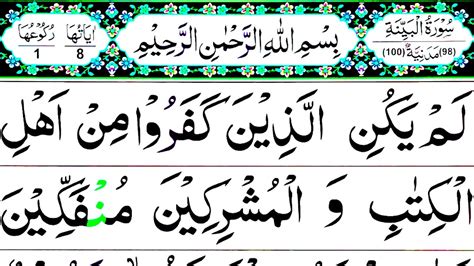 سُوْرَةُ الْبَيِّنَةِ
(98) مَدَنِيَّةٌ (100)
بِسْمِ اللهِ الرَّحْمٰنِ الرَّحِيْمِ
اٰيَاتُهَا رُكُوْعُهَا
8 1
لَمْ يَكُنِ الَّذِيْنَ كَفَرُوْا مِنْ اَهْلِ
الْكِتٰبِ وَ الْمُشْرِكِيْنَ مُنْفَكِّيْنَ